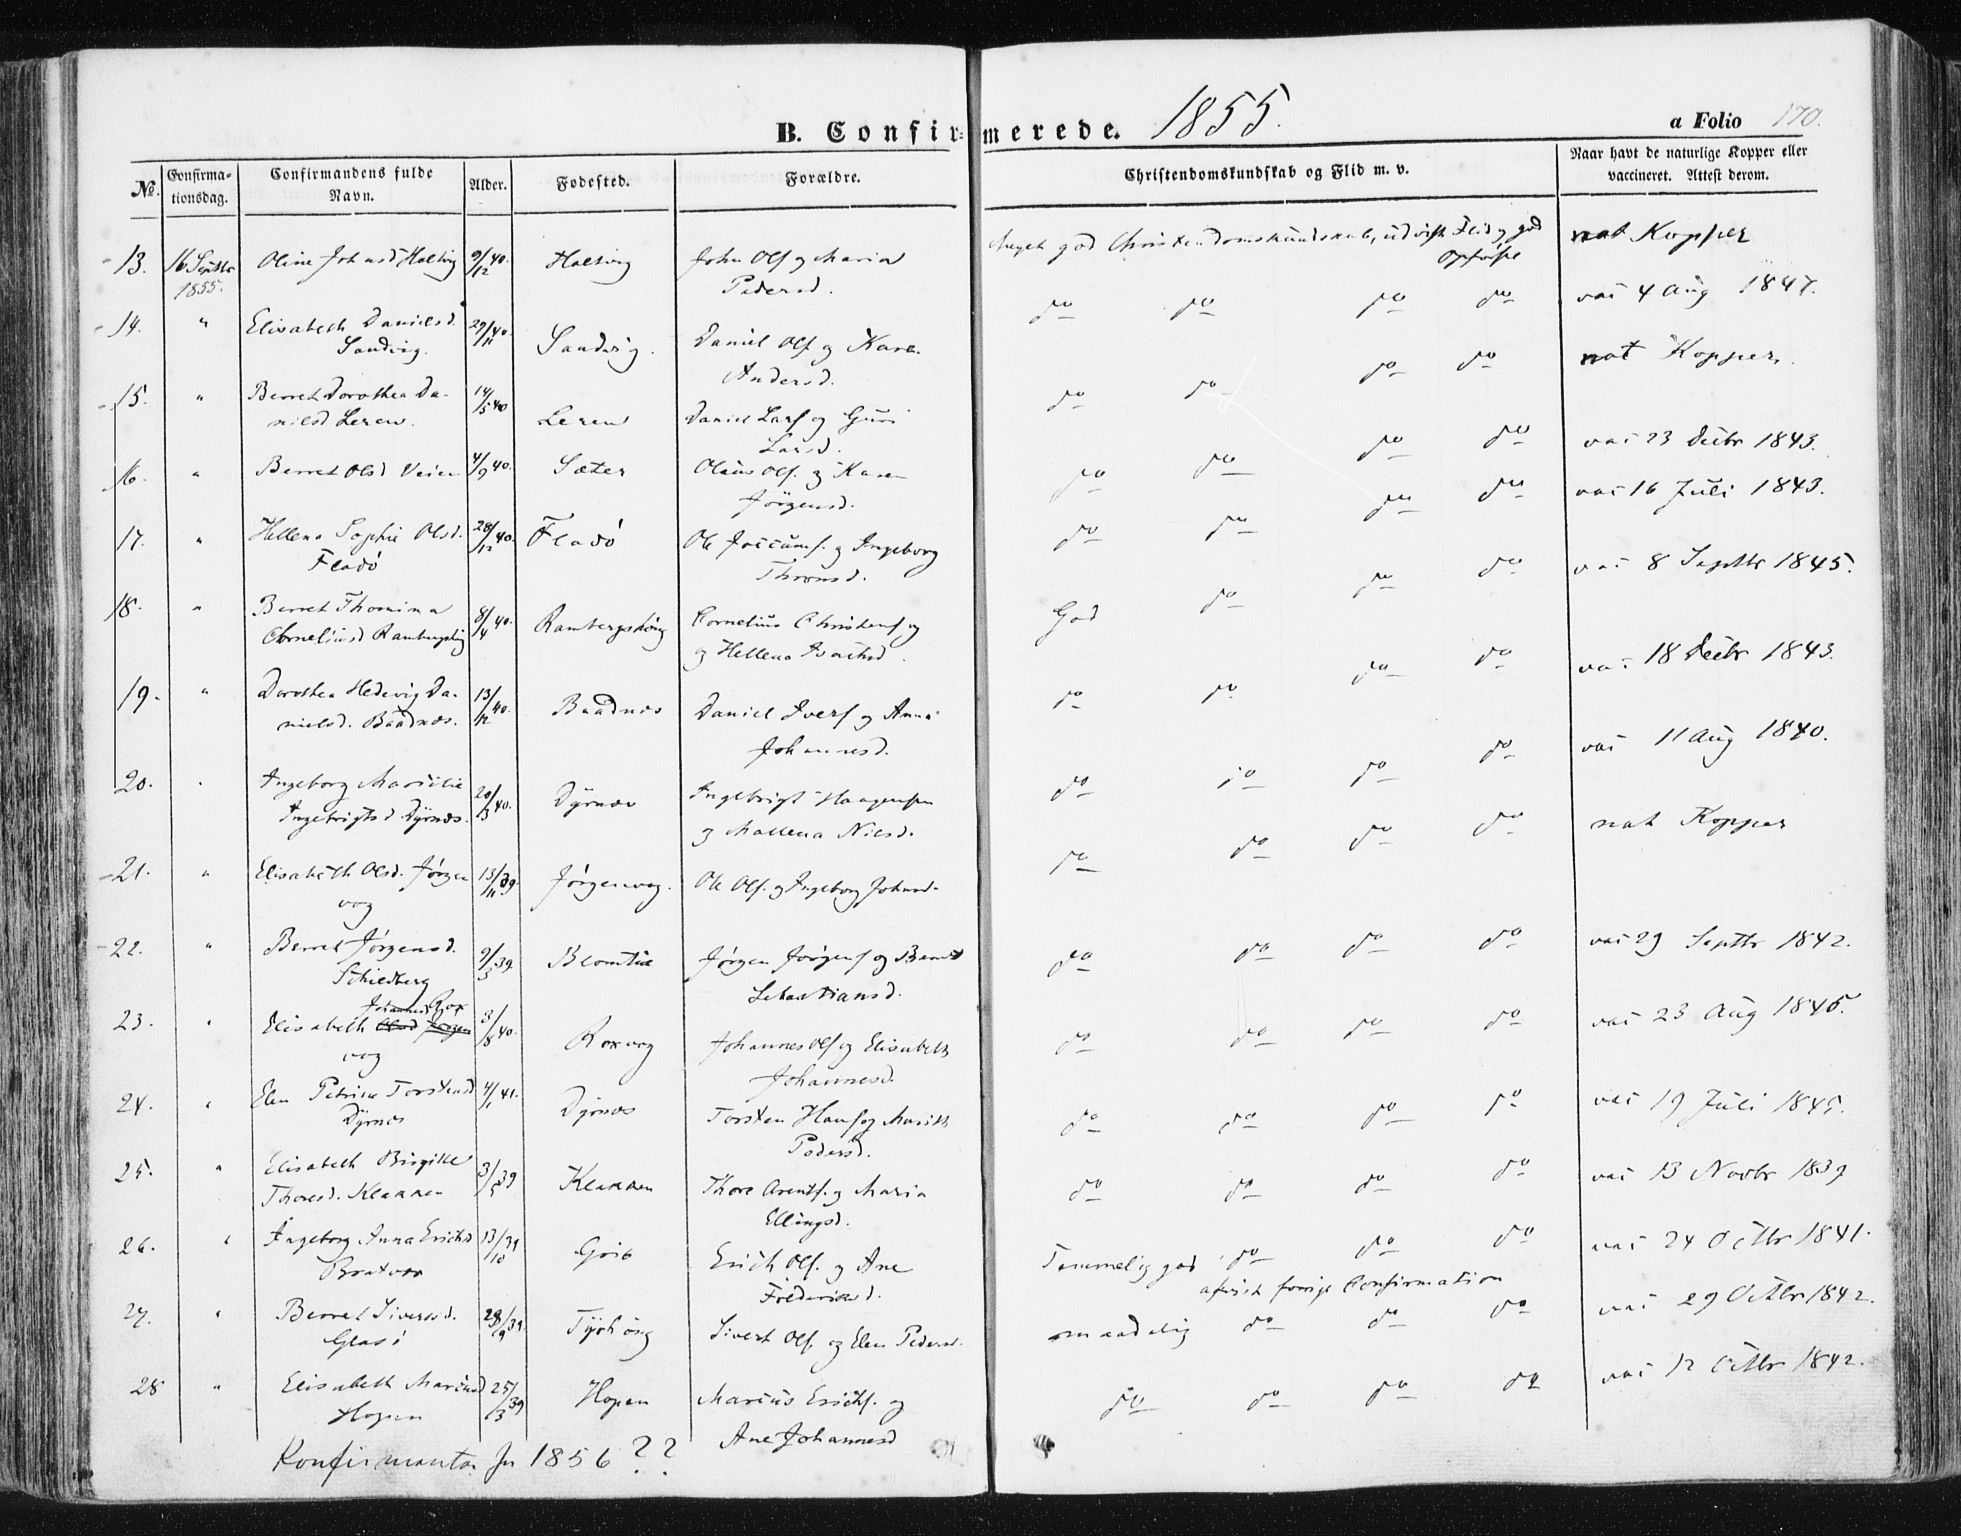 B. Confirmerede. 1855.
a Folio 170.
No.
Confirmationsdag.
Confirmandens fulde Navn.
Alder.
Fødested.
Forældre.
Christendomskundskab og Flid m. v.
Naar havt de naturlige Kopper eller vaccineret. Attest derom.
13. 16 Septbr 1855. Oline Johnsd Holtvig 9/12 40. Holtvig John Olf og Maria
Pedersd.
Meget god Christendomskundskab, udvist Flid og god nat Kopper
Opførsel
14. " Elisabeth Danielsd. 29/11 40. Sandvig. Daniel Olf og Karen do do do do vac 4 Aug 1847.
Sandvig. Andersd.
15. " Berret Dorothea Da- 14/5 40 Leren Daniel Larf og Guri do do do do nat Kopper.
nielsd Leren. Larsd.
16. " Berret Olsd Veien 4/9 40. Sæter Olaus Olf. og Karen do do do do vac 23 Decbr 1843.
Jörgensd.
17. " Hellena Sophie Olsd. 28/12 40. Fladö Ole Joccumf. og Ingeborg do do do do vac 16 Juli 1843.
Fladö Thronsd.
18. " Berret Thomina 8/4 40. Cornelius Christenf og God do do do vac 8 Septbr 1845.
Corneliusd
og Hellena Isachsd.
19. " Dorothea Hedevig Da- 13/12 40. Baadnæs Daniel Iverf og Anna do do do do vac 18 Decbr 1843.
nielsd. Baadnæs. Johannesd.
20. " Ingeborg 20/3 40. Dyrnæs Ingebrigt Haagensen do do do do vac 11 Aug 1840.
Ingebrigtsd Dyrnæs. og Mallena Nilsd.
21. " Elisabeth Olsd. Jörgen 13/11 39. Jörgenvog. Ole Olf. og Ingeborg Johnsd. do do do do nat Kopper
vog
22. " Berret Jörgensd. 9/5 39. Jörgen Jörgenf og Berret do do do do vac 29 Septbr 1842.
Sebastiansd.
Johannesd Rox
23. " Elisabeth Olsd Jörgen 3/8 40. Roxvog Johannes Olf og Elisabeth do do do do vac 23 Aug 1845.
vog Johannesd.
24. " Elen Petrine Torstensd 4/1 41. Dyrnæs Torsten Hansf og Marith do do do do vac 19 Juli 1845.
Dyrnæs Pedersd.
25. " Elisabeth Birgitte 3/5 39 Klakken Thore Arentf. og Maria do do do do vac 13 Novbr 1839
Thoresd. Klakken Ellingsd.
26. " Ingeborg Anna Erichsd 13/10 39 Grib Erich Olf. og Ane Temmelig god do do do vac 24 Octbr 1841.
Bratvær Fréderiksd.
afvist forrige Confirmation
27. " Berret Siversd. 28/9 39. Sivert Olf. og Elen Pedersd. maadelig do do do vac 29 Octbr 1842.
28 " Elisabeth Mariusd 25/3 39 Hopen Marius Erichf. og do do do do vac 12 Octbr 1842.
Hopen Ane Johannesd
Konfirmanter for 1856 ??